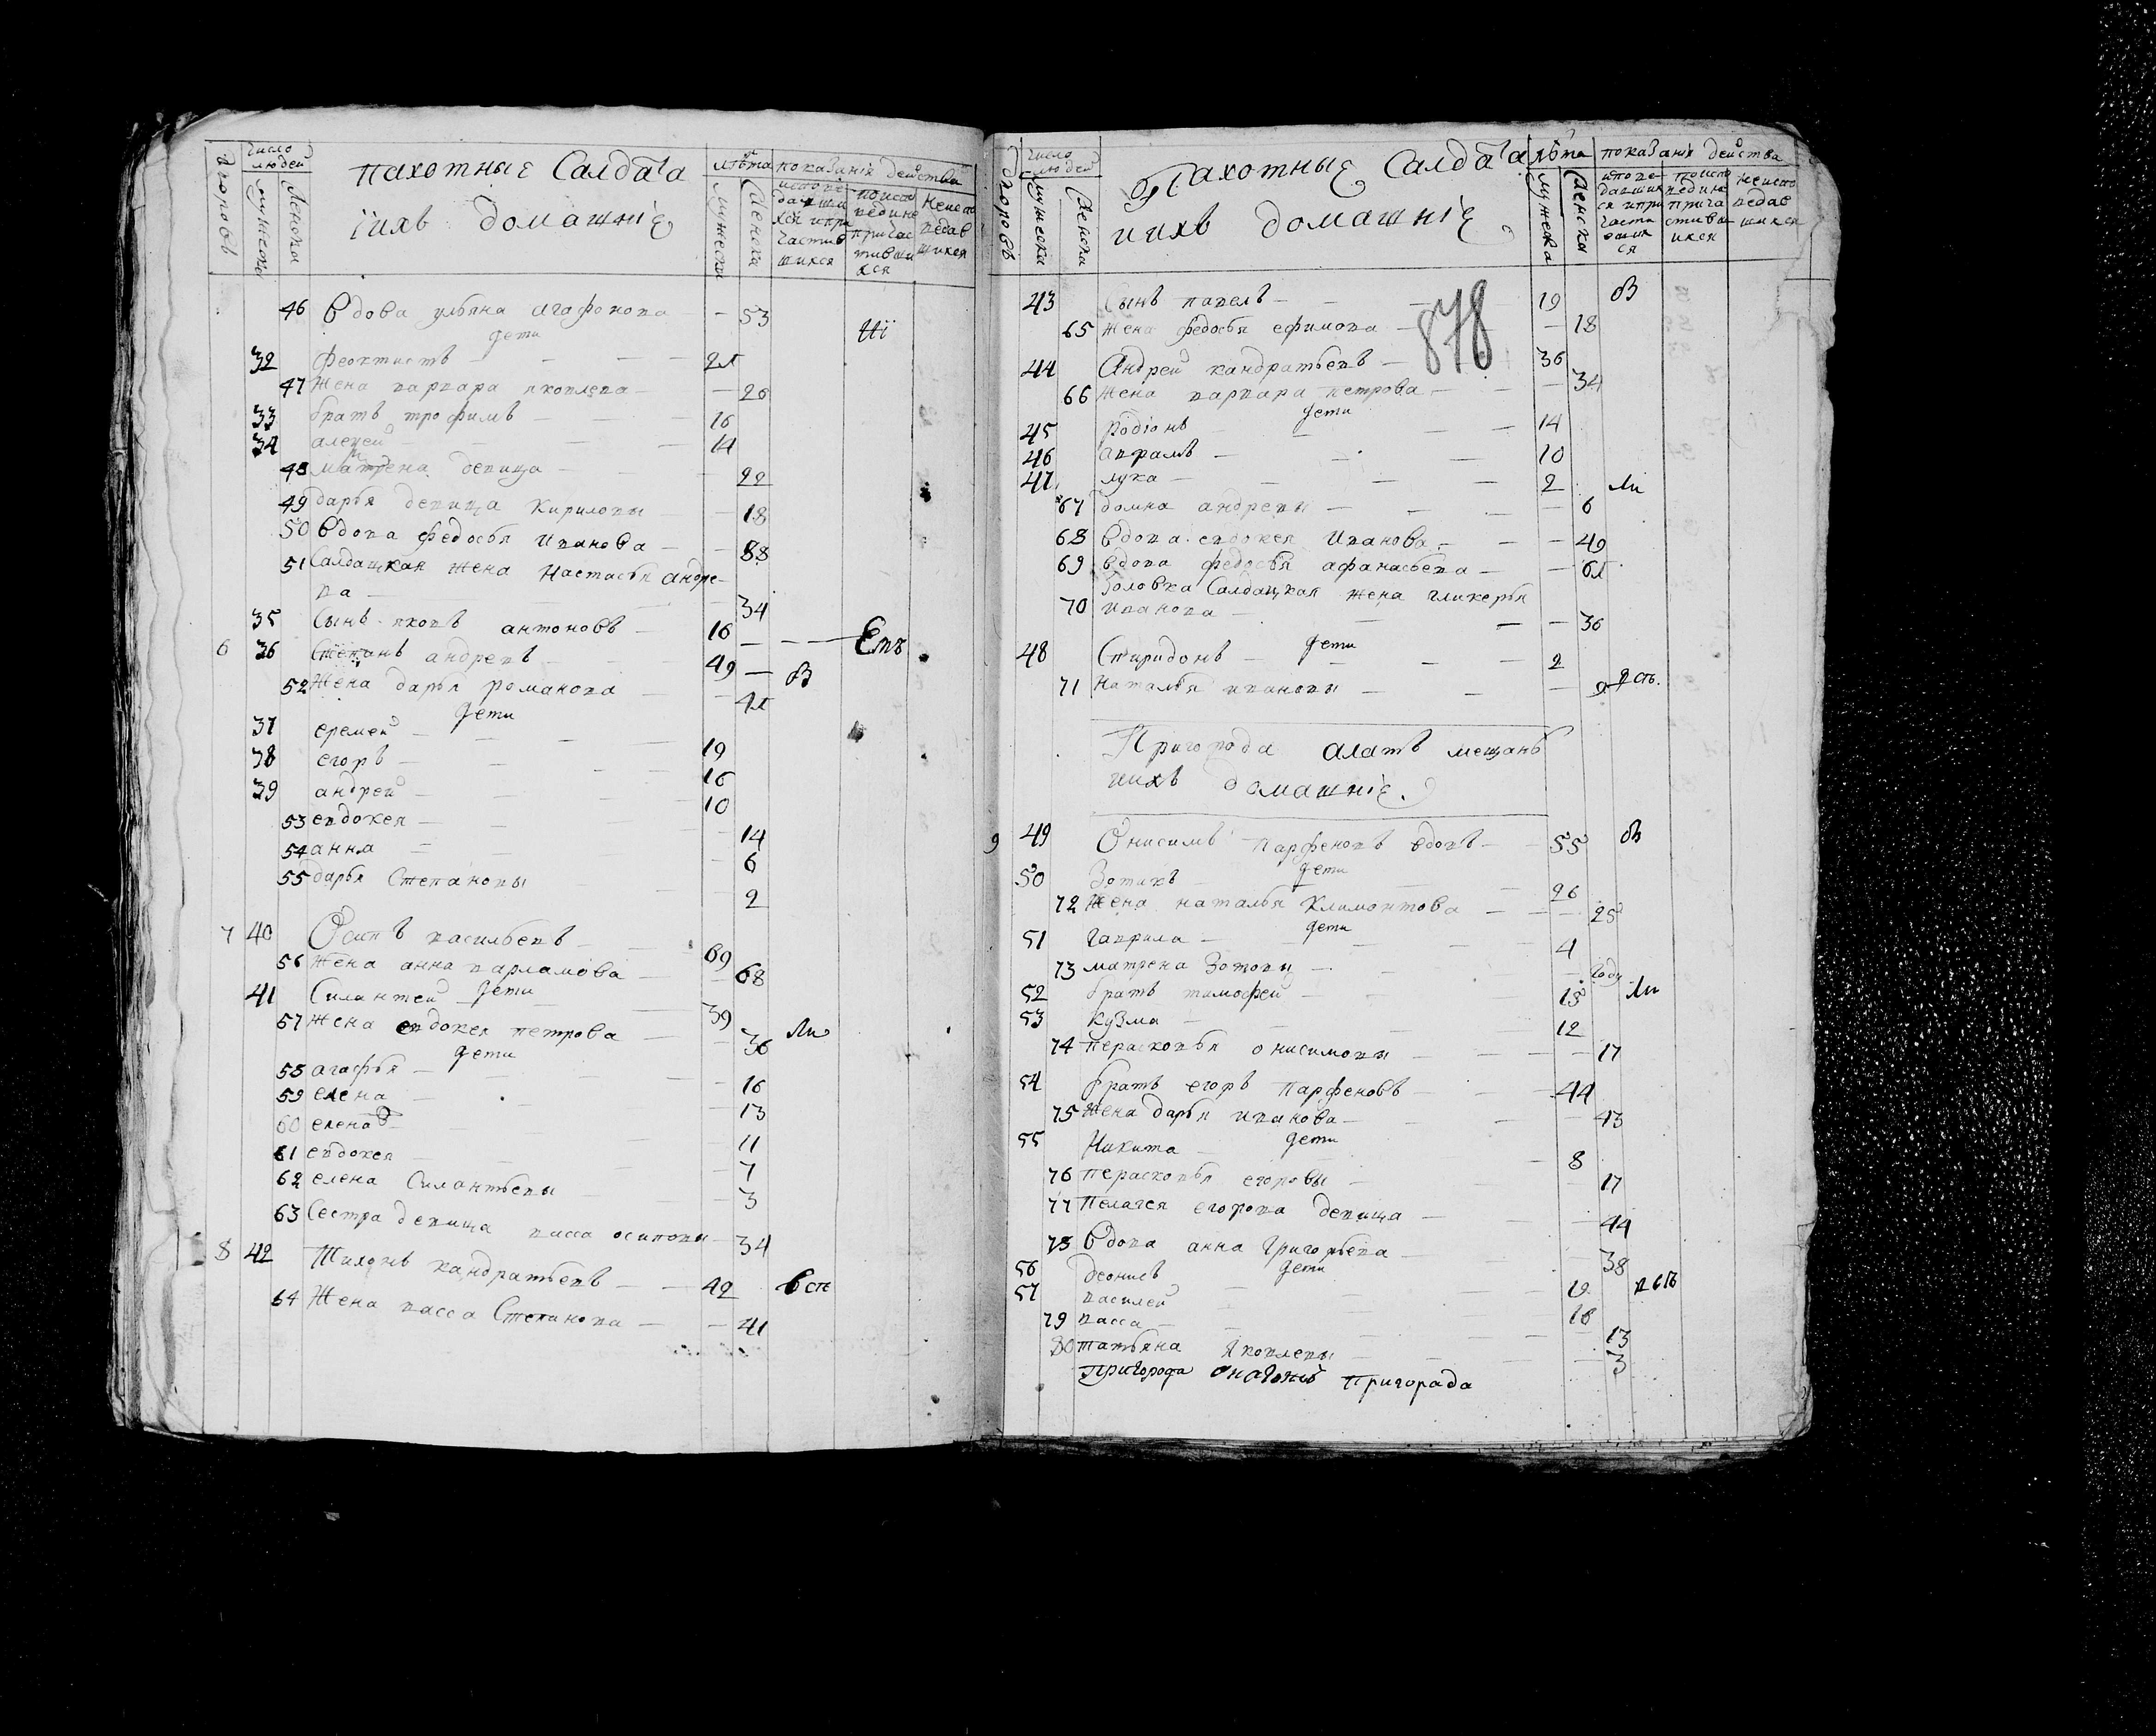 дворовъ
число людей
мужеска
женска
пахотные Салдата
иихъ домашніе
лѣта
мужеска
женска
показанія действа
исповедавшихся ипричастившихся
поисповедине причастившихся
неисповедавшихся
46 вдова ульяна агафонова — 53
дети
32 феоктистъ — 2л
47 жена варвара яковлева — 26
33 братъ трофимъ — 16
34 алексей — 14
48 матрена девица — 22
49 дарья девица Кириловы — 18
50 вдова Федосья Иванова — 58
51 Салдацкая жена Настасья андре-
ва — 34
35 Сынъ яковъ антоновъ — 16
6 36 Степанъ андревъ — 49
52 жена дарья романова — 4л
дети
37 еремей — 19
38 егоръ — 16
39 андрей — 10
53 евдокея — 14
54 анна — 6
55 дарья Степановы — 2
7 40 Осипъ васильевъ — 69
56 жена анна варламова — 68
41 Силантей дети — 39
57 жена евдокея петрова — 36
дети
58 агафья — 16
59 елена — 13
60 елена — 11
61 евдокея — 7
62 елена Силантьевы — 3
63 Сестра девица васса осиповы — 34
8 42 Тихонъ кандратьевъ — 42
64 Жена васса Степанова — 41
дворовъ
число людей
мужеска
женска
Пахотные Салдата
иихъ домашніе
лѣта
мужеска
женска
показанія действа
878
43 Сынъ павелъ — 19
65 жена федосья ефимова — 18
44 Андрей кандратьевъ — 36
66 жена варвара петрова — 34
дети
45 Родіонъ — 14
46 аврамъ — 10
47 лука — 2
67 домна андревы — 6
68 вдова евдокея Иванова — 49
69 вдова федосья афанасьева — 6л
Золовка Салдацкая жена гликерья
70 иванова — 36
дети
48 Спиридонъ — 2
71 наталья ивановы —
Пригорода алатъ мещанъ
иихъ домашніе
9 49 Онисимъ Парфеновъ вдовъ — 55
дети
50 Зотикъ — 26
72 жена наталья Климонтова — 25
дети
51 гаврила — 4
73 матрена Зотовы — году
52 братъ тимофей — 15
53 Кузма — 12
74 перасковья онисимовы — 17
54 братъ егоръ Парфеновъ — 44
75 жена дарья иванова — 43
дети
55 Никита — 8
76 перасковья егоровы — 17
77 Пелагея егорова девица — 44
78 Вдова анна Григорьева — 38
дети
56 деонисъ — 19
57 василей — 16
79 васса — 13
80 татьяна Яковлевы — 3
Пригорода Пригорада